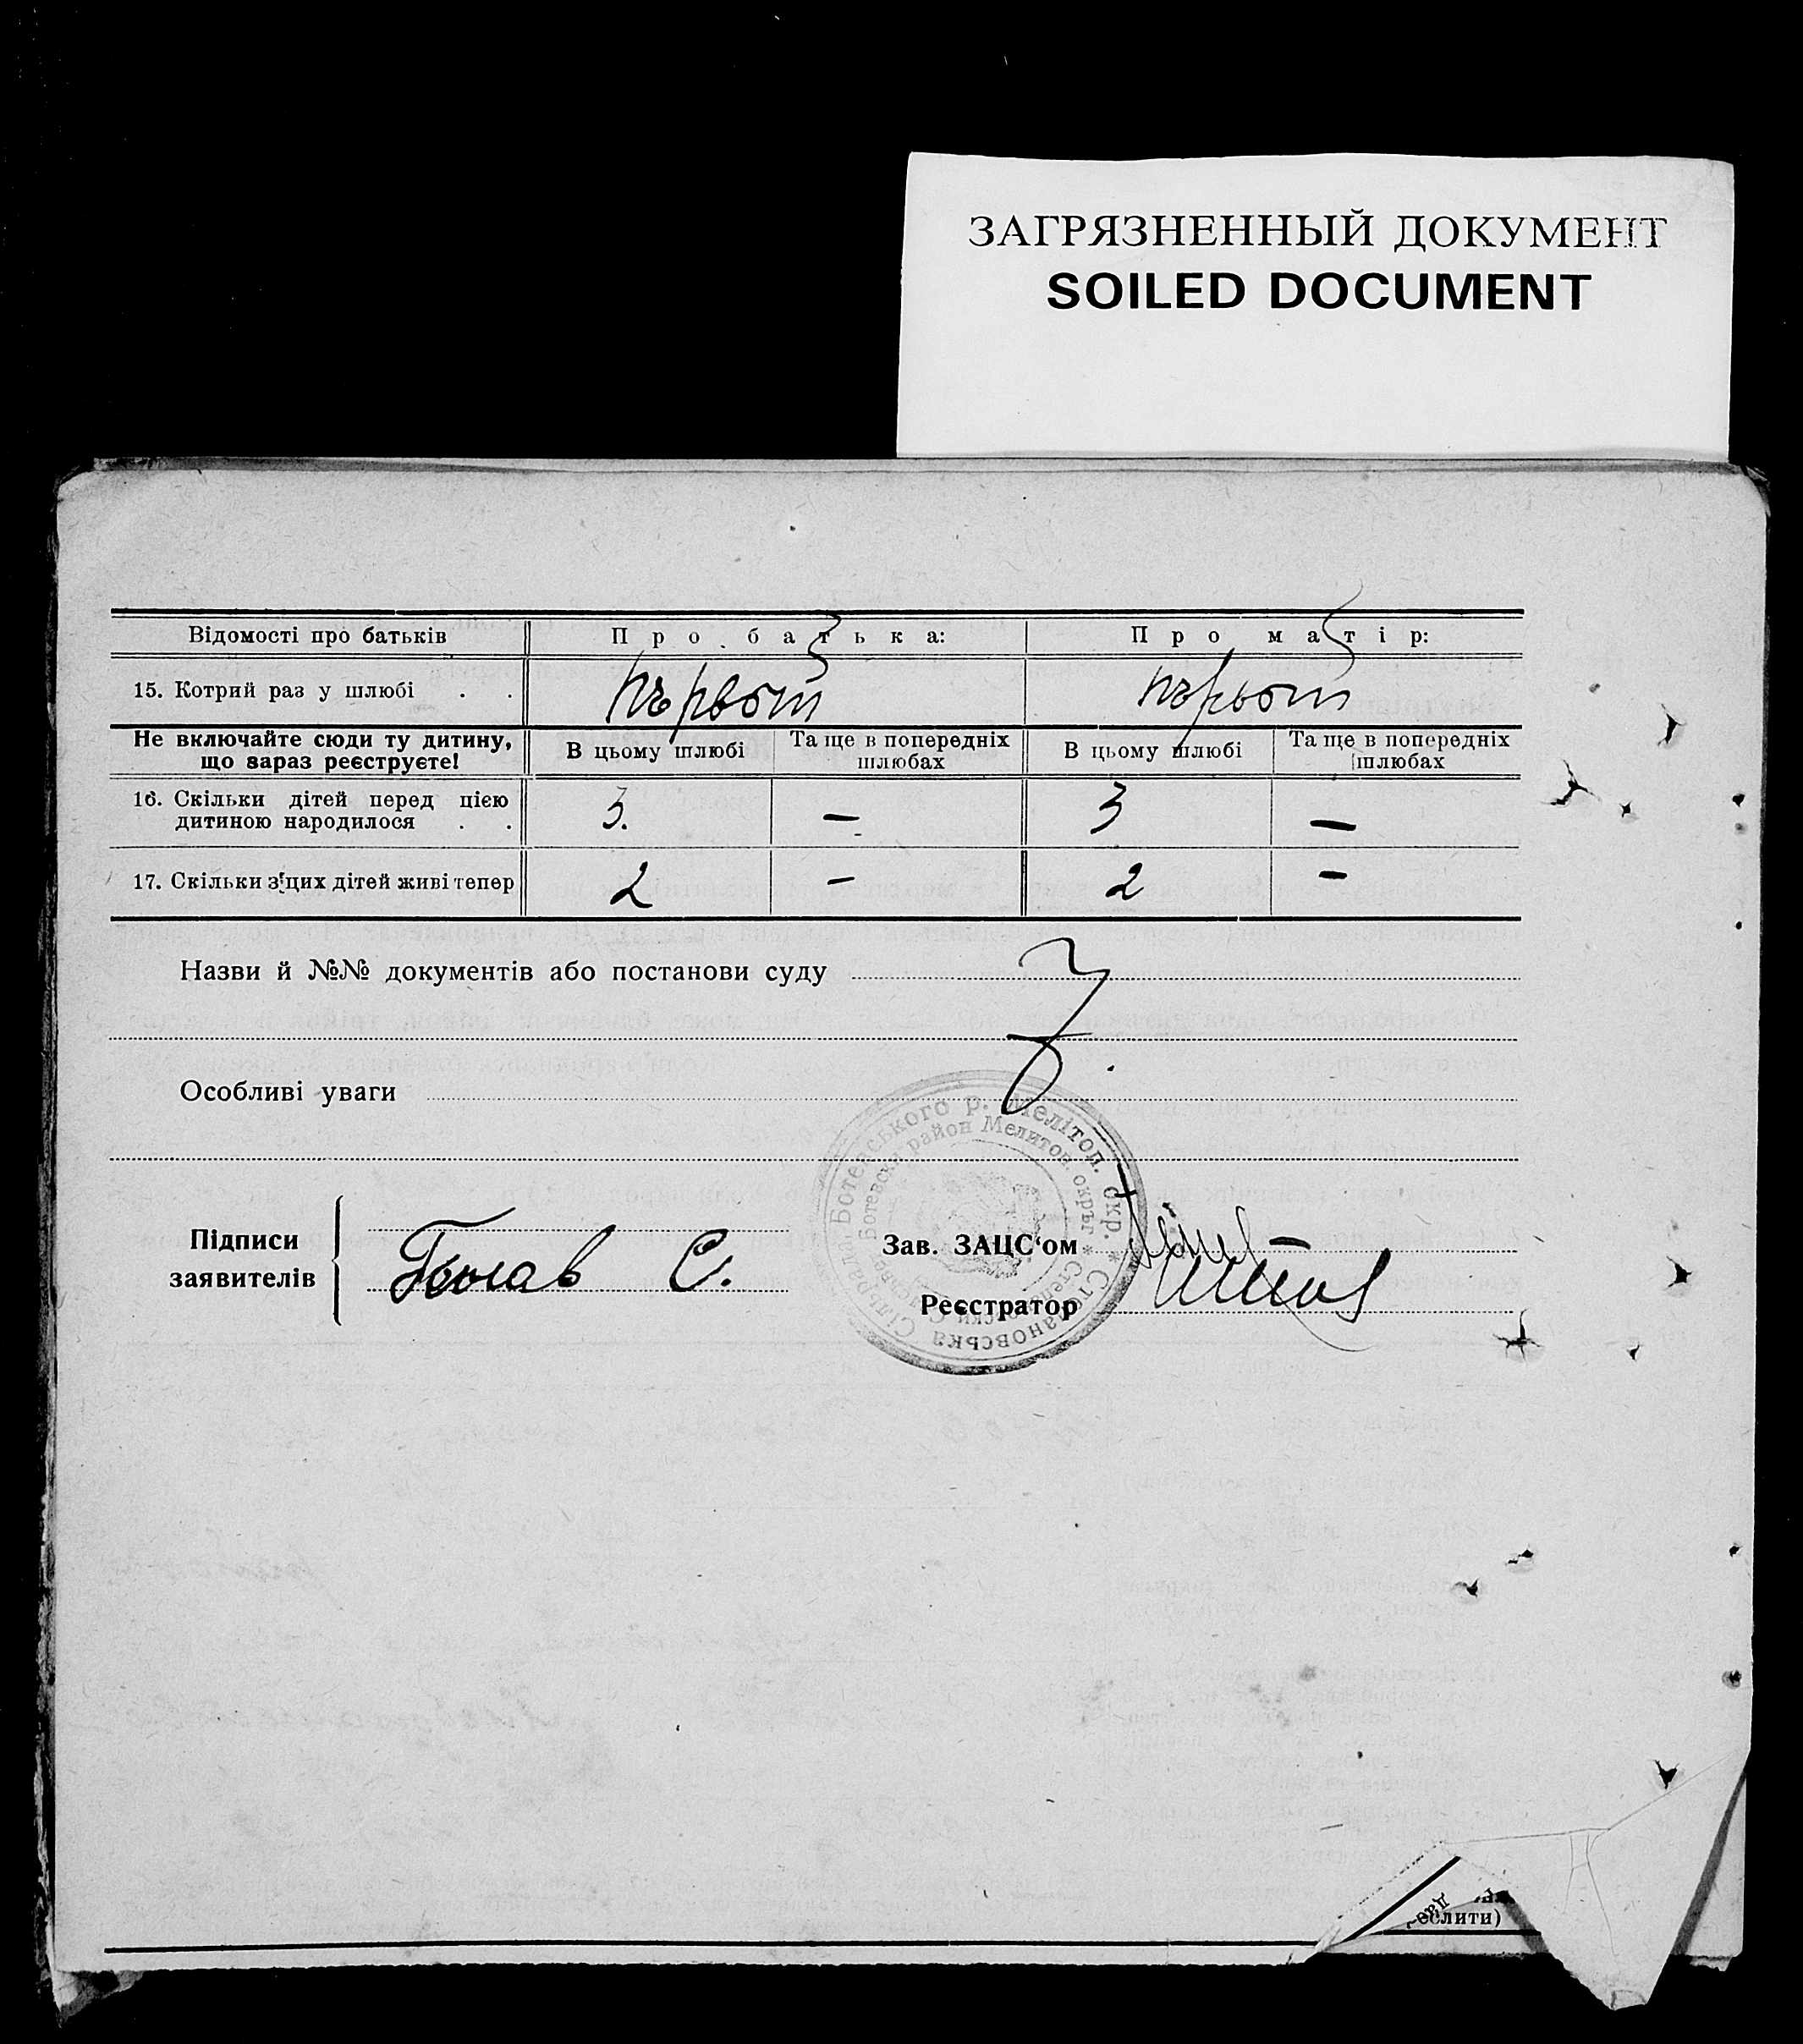 ЗАГРЯЗНЕННЫЙ ДОКУМЕНТ
SOILED DOCUMENT
Відомості про батьків Про батька: Про матір:
15. Котрий раз у шлюбі . . първой първой
Не включайте сюди ту дитину, що зараз реєструєте! В цьому шлюбі Та ще в попередніх шлюбах В цьому шлюбі Та ще в попередніх шлюбах
16. Скільки дітей перед цією дитиною народилося . . 3. — 3 —
17. Скільки з цих дітей живі тепер 2 — 2 —
Назви й №№ документів або постанови суду
Особливі уваги
Ботевського р. Мелітоп. окр. * Степановська Сільрада
Ботевски район Мелитоп. окръг *
Підписи заявителів
С.
Зав. ЗАЦС'ом
Реєстратор